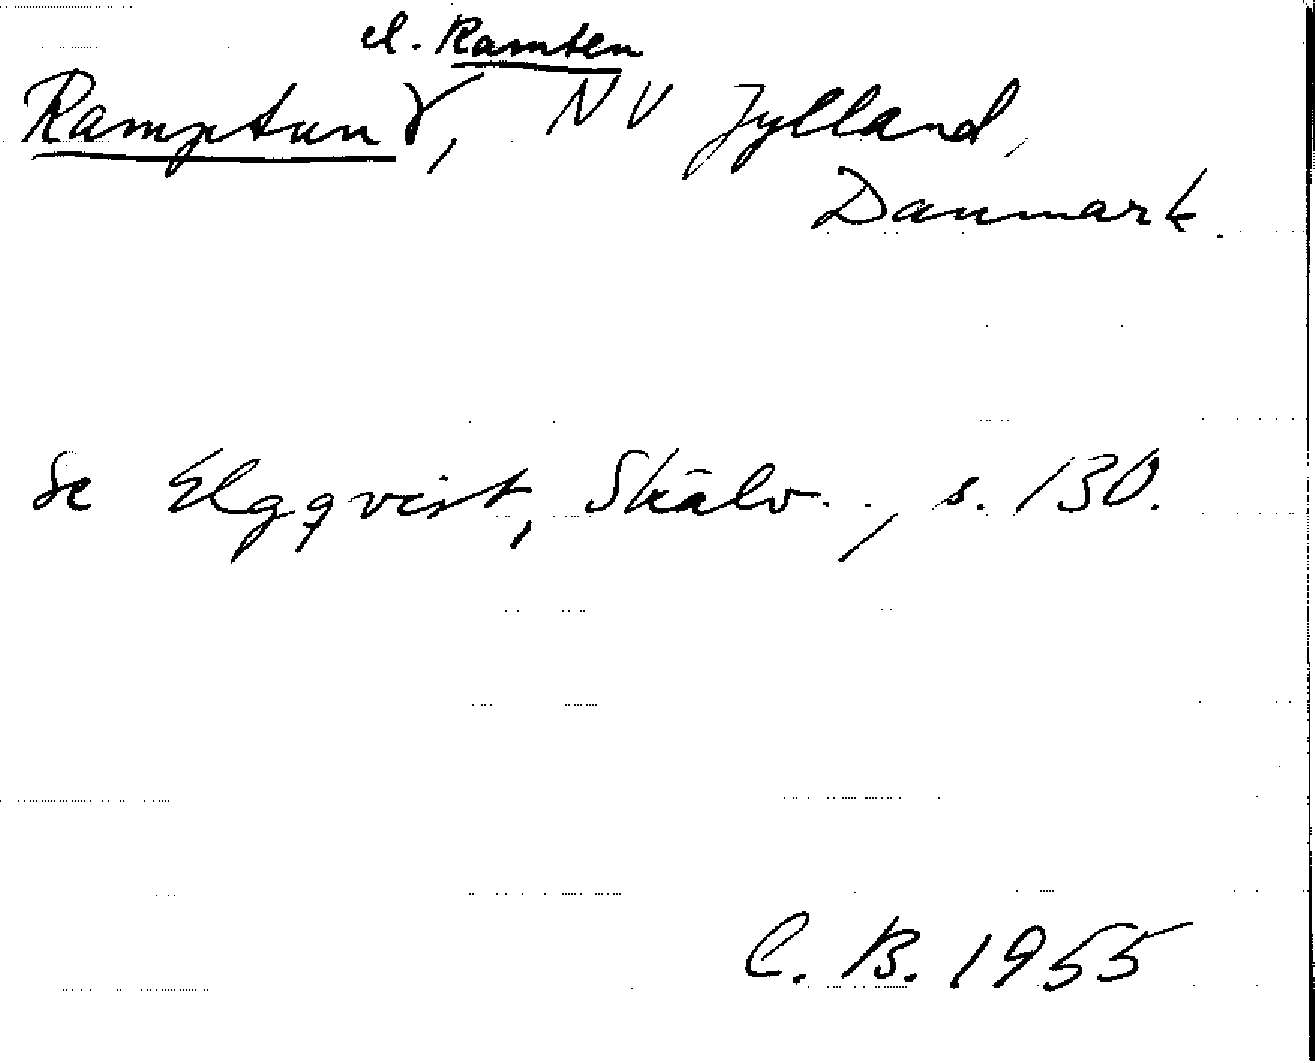 el. Ramten
Ramptun 8, NV Jylland,
Danmark.
Se Elgqvist, Skälv.., s. 130.
C. B. 1955